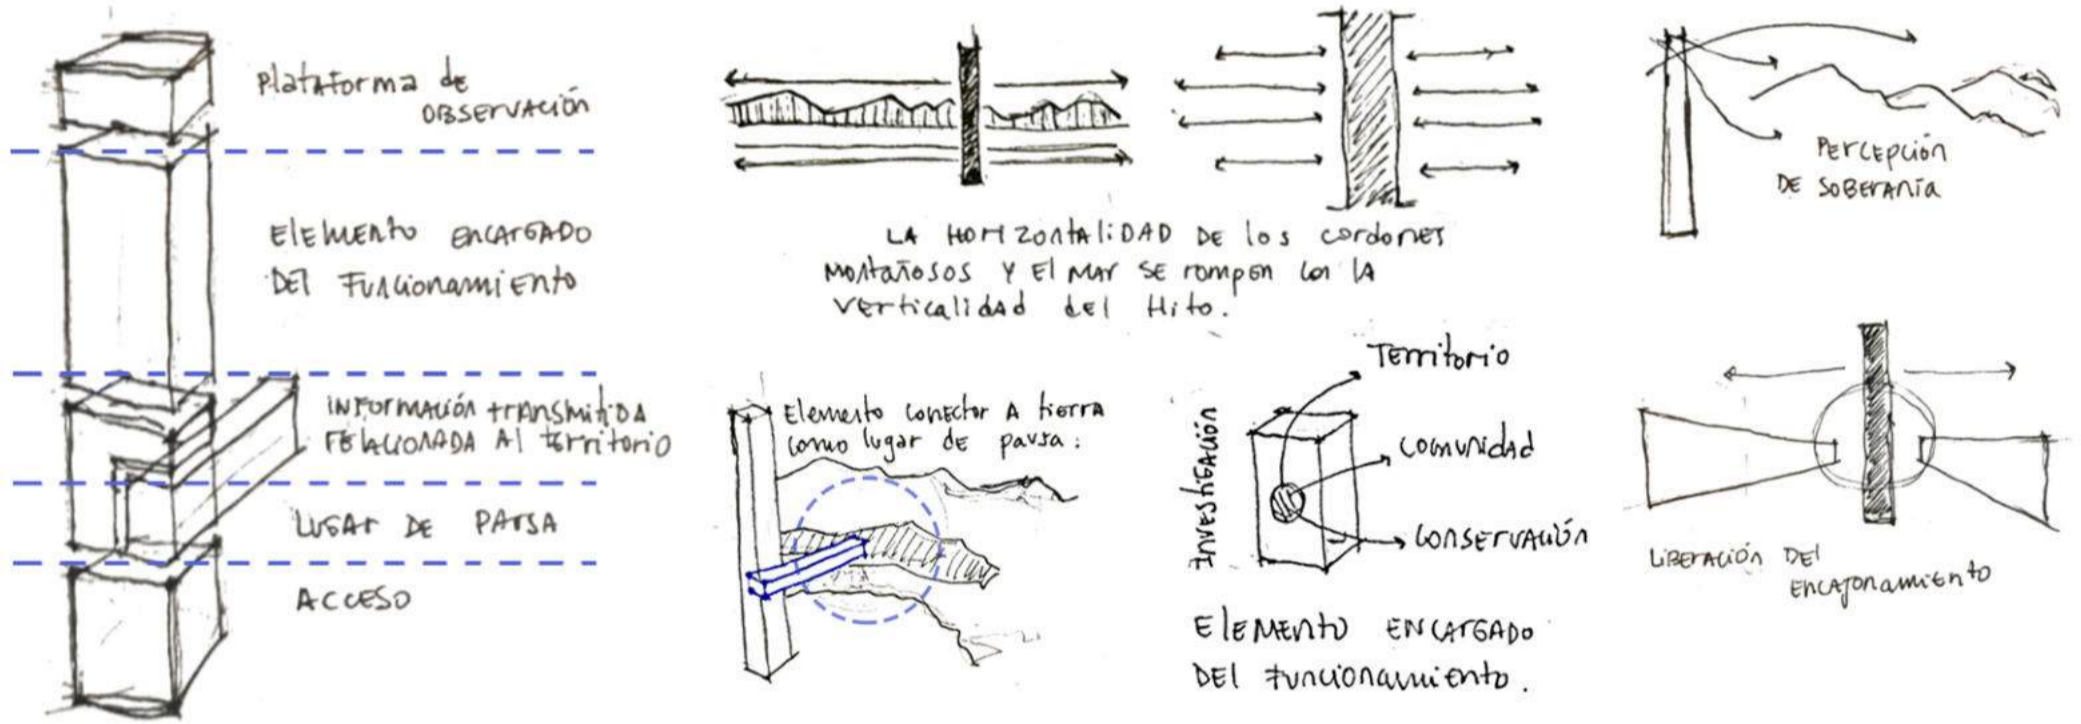 Plataforma de
OBSERVACIÓN
ELEMENTO ENCARGADO
DEL FUNCIONAMIENTO
INFORMACIÓN TRANSMITIDA
RELACIONADA AL TERRITORIO
LUGAR DE PAUSA
ACCESO
LA HORIZONTALIDAD DE los cordones
MONTAÑOSOS Y El MAR SE rompen con lA
verticalidad del Hito.
PERCEPCIÓN
DE SOBERANÍA
Elemento conector A tierra
como lugar de pausa:
INVESTIGACIÓN
Territorio
COMUNIDAD
CONSERVACIÓN
ElEMENTO ENCARGADO
DEl FUNCIONAMIENTO.
LIBERACIÓN DEl
ENCAJONAMIENTO